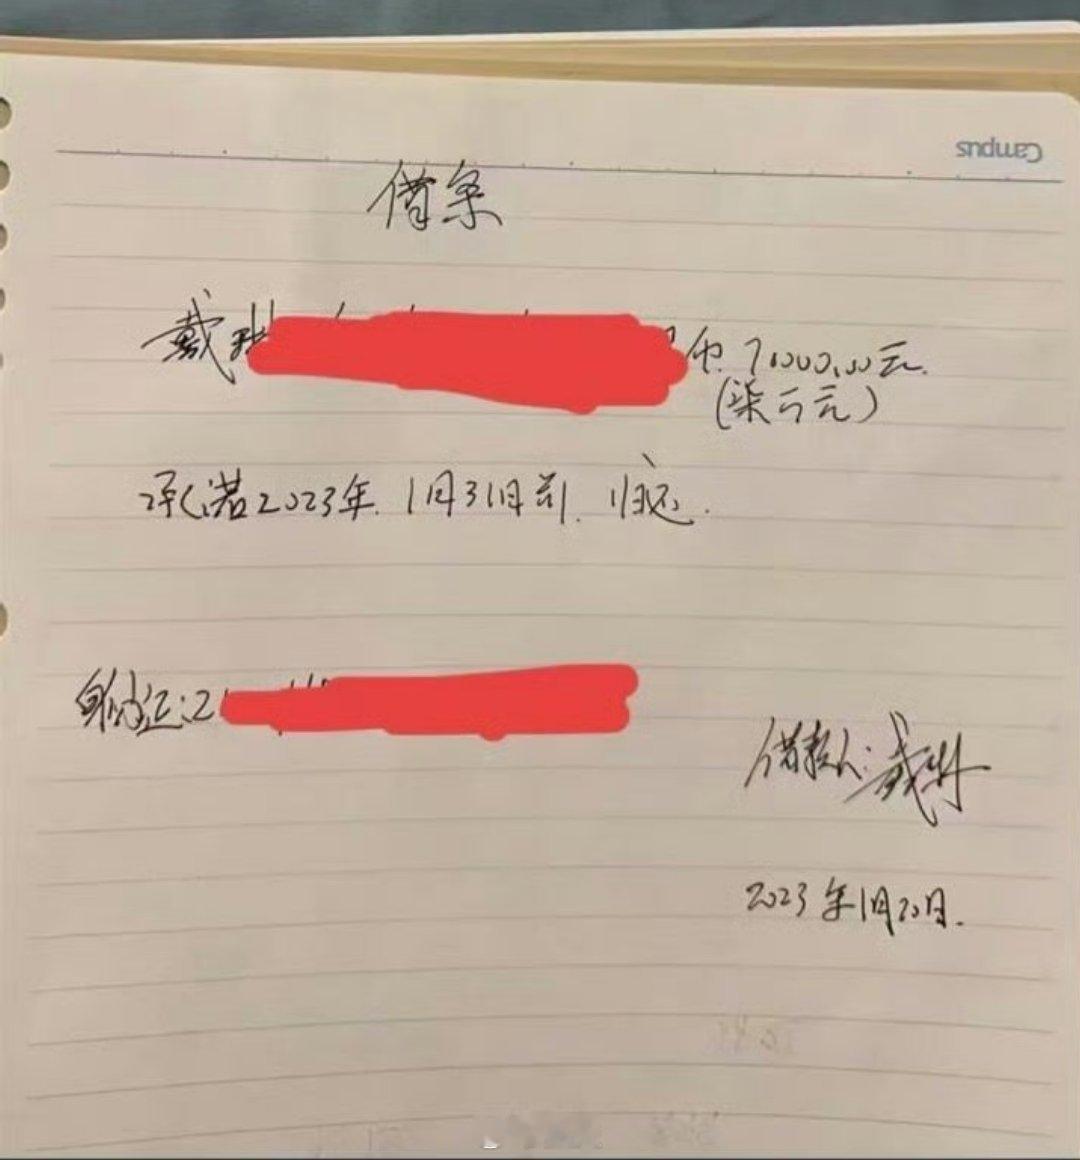 Campus
借条
戴琳 币 7000.00元.
(柒仟元)
承诺2023年.1月31日前.归还.
身份证:2
借款人:戴琳
2023年1月20日.